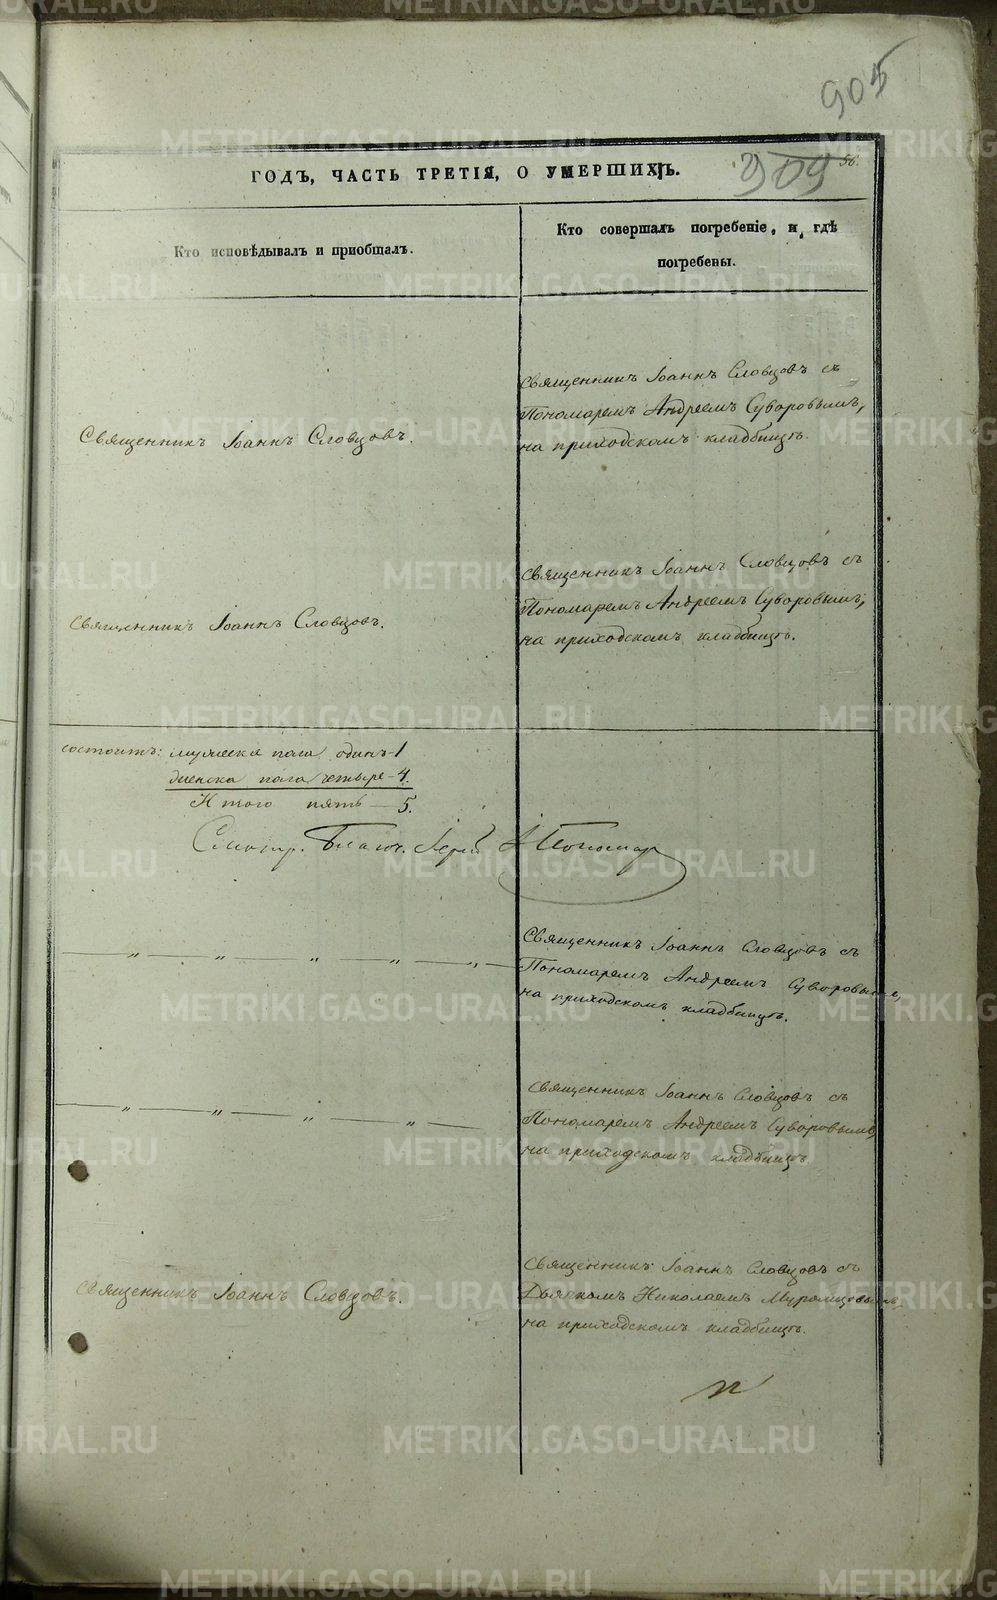 905
909
56.
ГОДЪ, ЧАСТЬ ТРЕТІЯ, О УМЕРШИХЪ.
Кто исповѣдывалъ и пріобщалъ.
Кто совершалъ погребеніе, и гдѣ
погребены.
Священникъ Іоаннъ Словцовъ.
Священникъ Іоаннъ Словцовъ съ
Пономаремъ Андреемъ Суворовымъ,
на приходскомъ кладбищѣ.
Священникъ Іоаннъ Словцовъ.
Священникъ Іоаннъ Словцовъ съ
Пономаремъ Андреемъ Суворовымъ,
на приходскомъ кладбищѣ.
состоитъ: мужеска пола одинъ-1
женска пола четыре-4.
Итого пять-5.
Священникъ Іоаннъ Словцовъ съ
Пономаремъ Андреемъ Суворовымъ,
на приходскомъ кладбищѣ.
Священникъ Іоаннъ Словцовъ съ
Пономаремъ Андреемъ Суворовымъ,
на приходскомъ кладбищѣ.
Священникъ Іоаннъ Словцовъ.
Священникъ Іоаннъ Словцовъ съ
Дьячкомъ Николаемъ Муромцовымъ,
на приходскомъ кладбищѣ.
METRIKI.GASO-URAL.RU